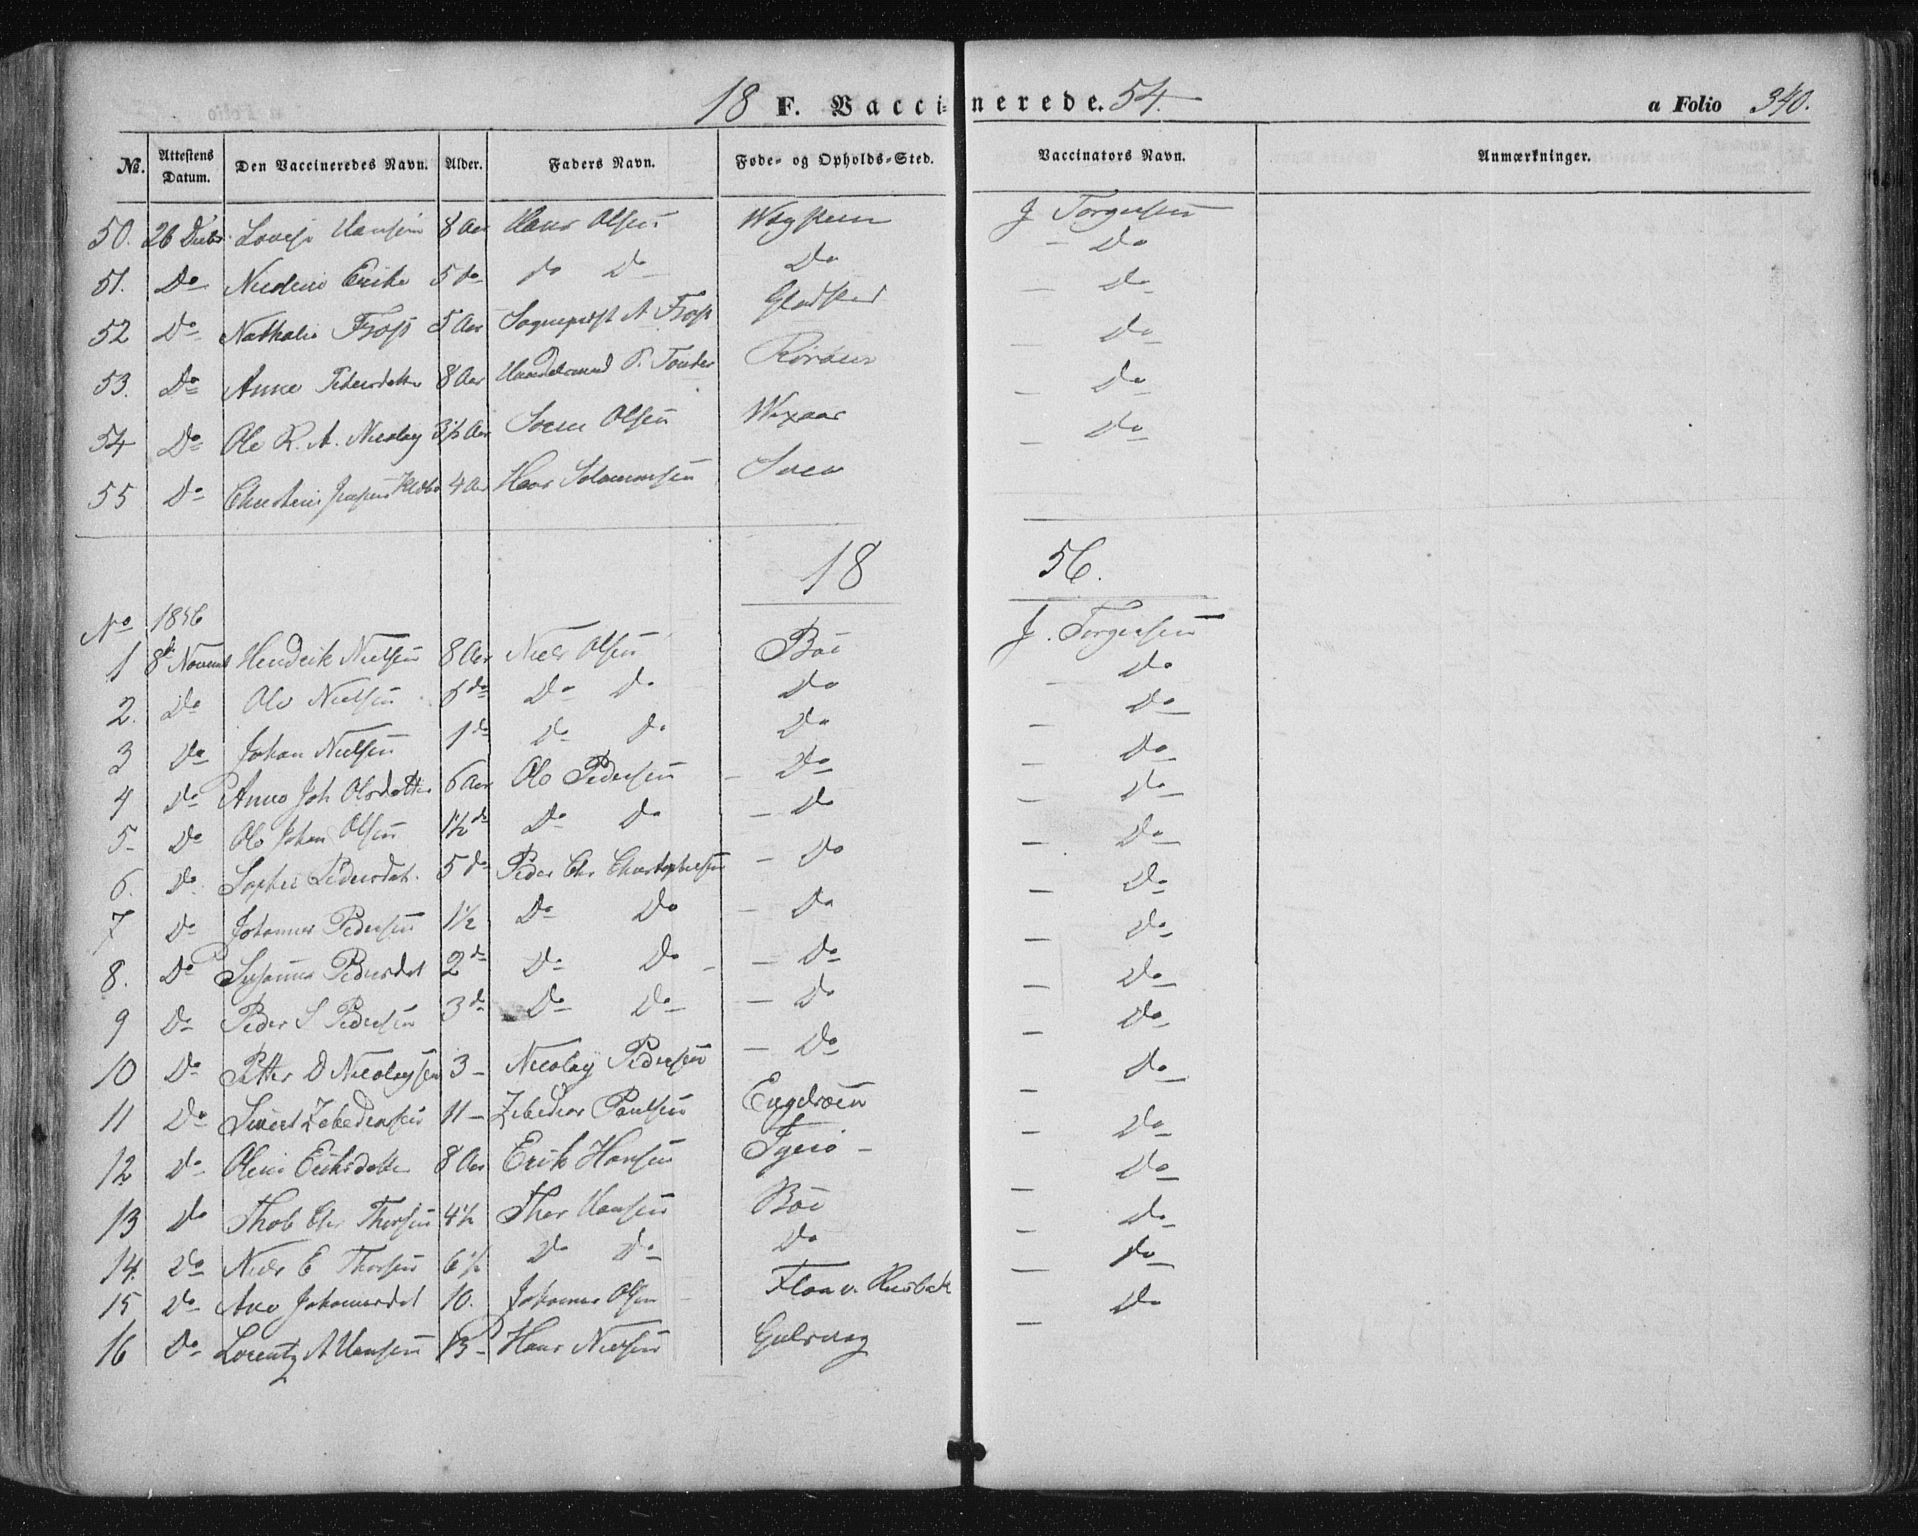 18 F. Vaccinerede. 54. a Folio 340.
No. Attestens Datum. Den Vaccineredes Navn. Alder. Faders Navn. Føde- og Opholds-Sted. Vaccinators Navn. Anmærkninger.
50. 26 Hansen 8 Aar Hans Olsen J. Torgersen
51. Do Erike 5 do do Do Do Do
52 Do Nathalie 5 Aar Sogneprest A Gladstad Do
53. Do Anne Pedersdatter 8 Aar Handelsmand P. Tonder Rørøen Do
54 Do Ole R. A. Nicolay 3½ Aar Olsen Do
55 Do 4 Aar Hans Solomonsen Do
18 56.
No 1856
1 8 Hendrik Nielsen 8 Aar Niels Olsen Böe J. Torgersen
2. Do Ole Nielsen Do Do Do Do
3 Do Johan Nielsen 1 do Do Do Do Do
4 Do Anne Joh Olsdatter 6 Aar Ole Pedersen - Do Do
5 Do Ole Johan Olsen 1½ do Do Do - Do Do
6. Do Sophie Pedersdat. 5 do Peder Chr Christophersen - Do Do
7 Do Johannes Pedersen 1½ Do Do - Do Do
8. Do Susanna Pedersdat 2 do Do Do - Do Do
9 Do Peder S Pedersen 3 do Do Do - Do Do
10 Do Petter D Nicolaysen 3 - Nicolay Pedersen - Do Do
11 Do Sivert Zebedeussen 11 - Zebedeus Paulsen Do
12 Do Oline Eriksdatter 8 Aar Erik Hansen Do
13 Do Thorsen 4½ Thor Hansen Böe Do
14. Do Niels E Thorsen 6½ Do Do Do Do
15 Do Ane Johannesdat 10. Johannes Olsen Do
16 Do Lorentz A Hansen 13 - Hans Nielsen